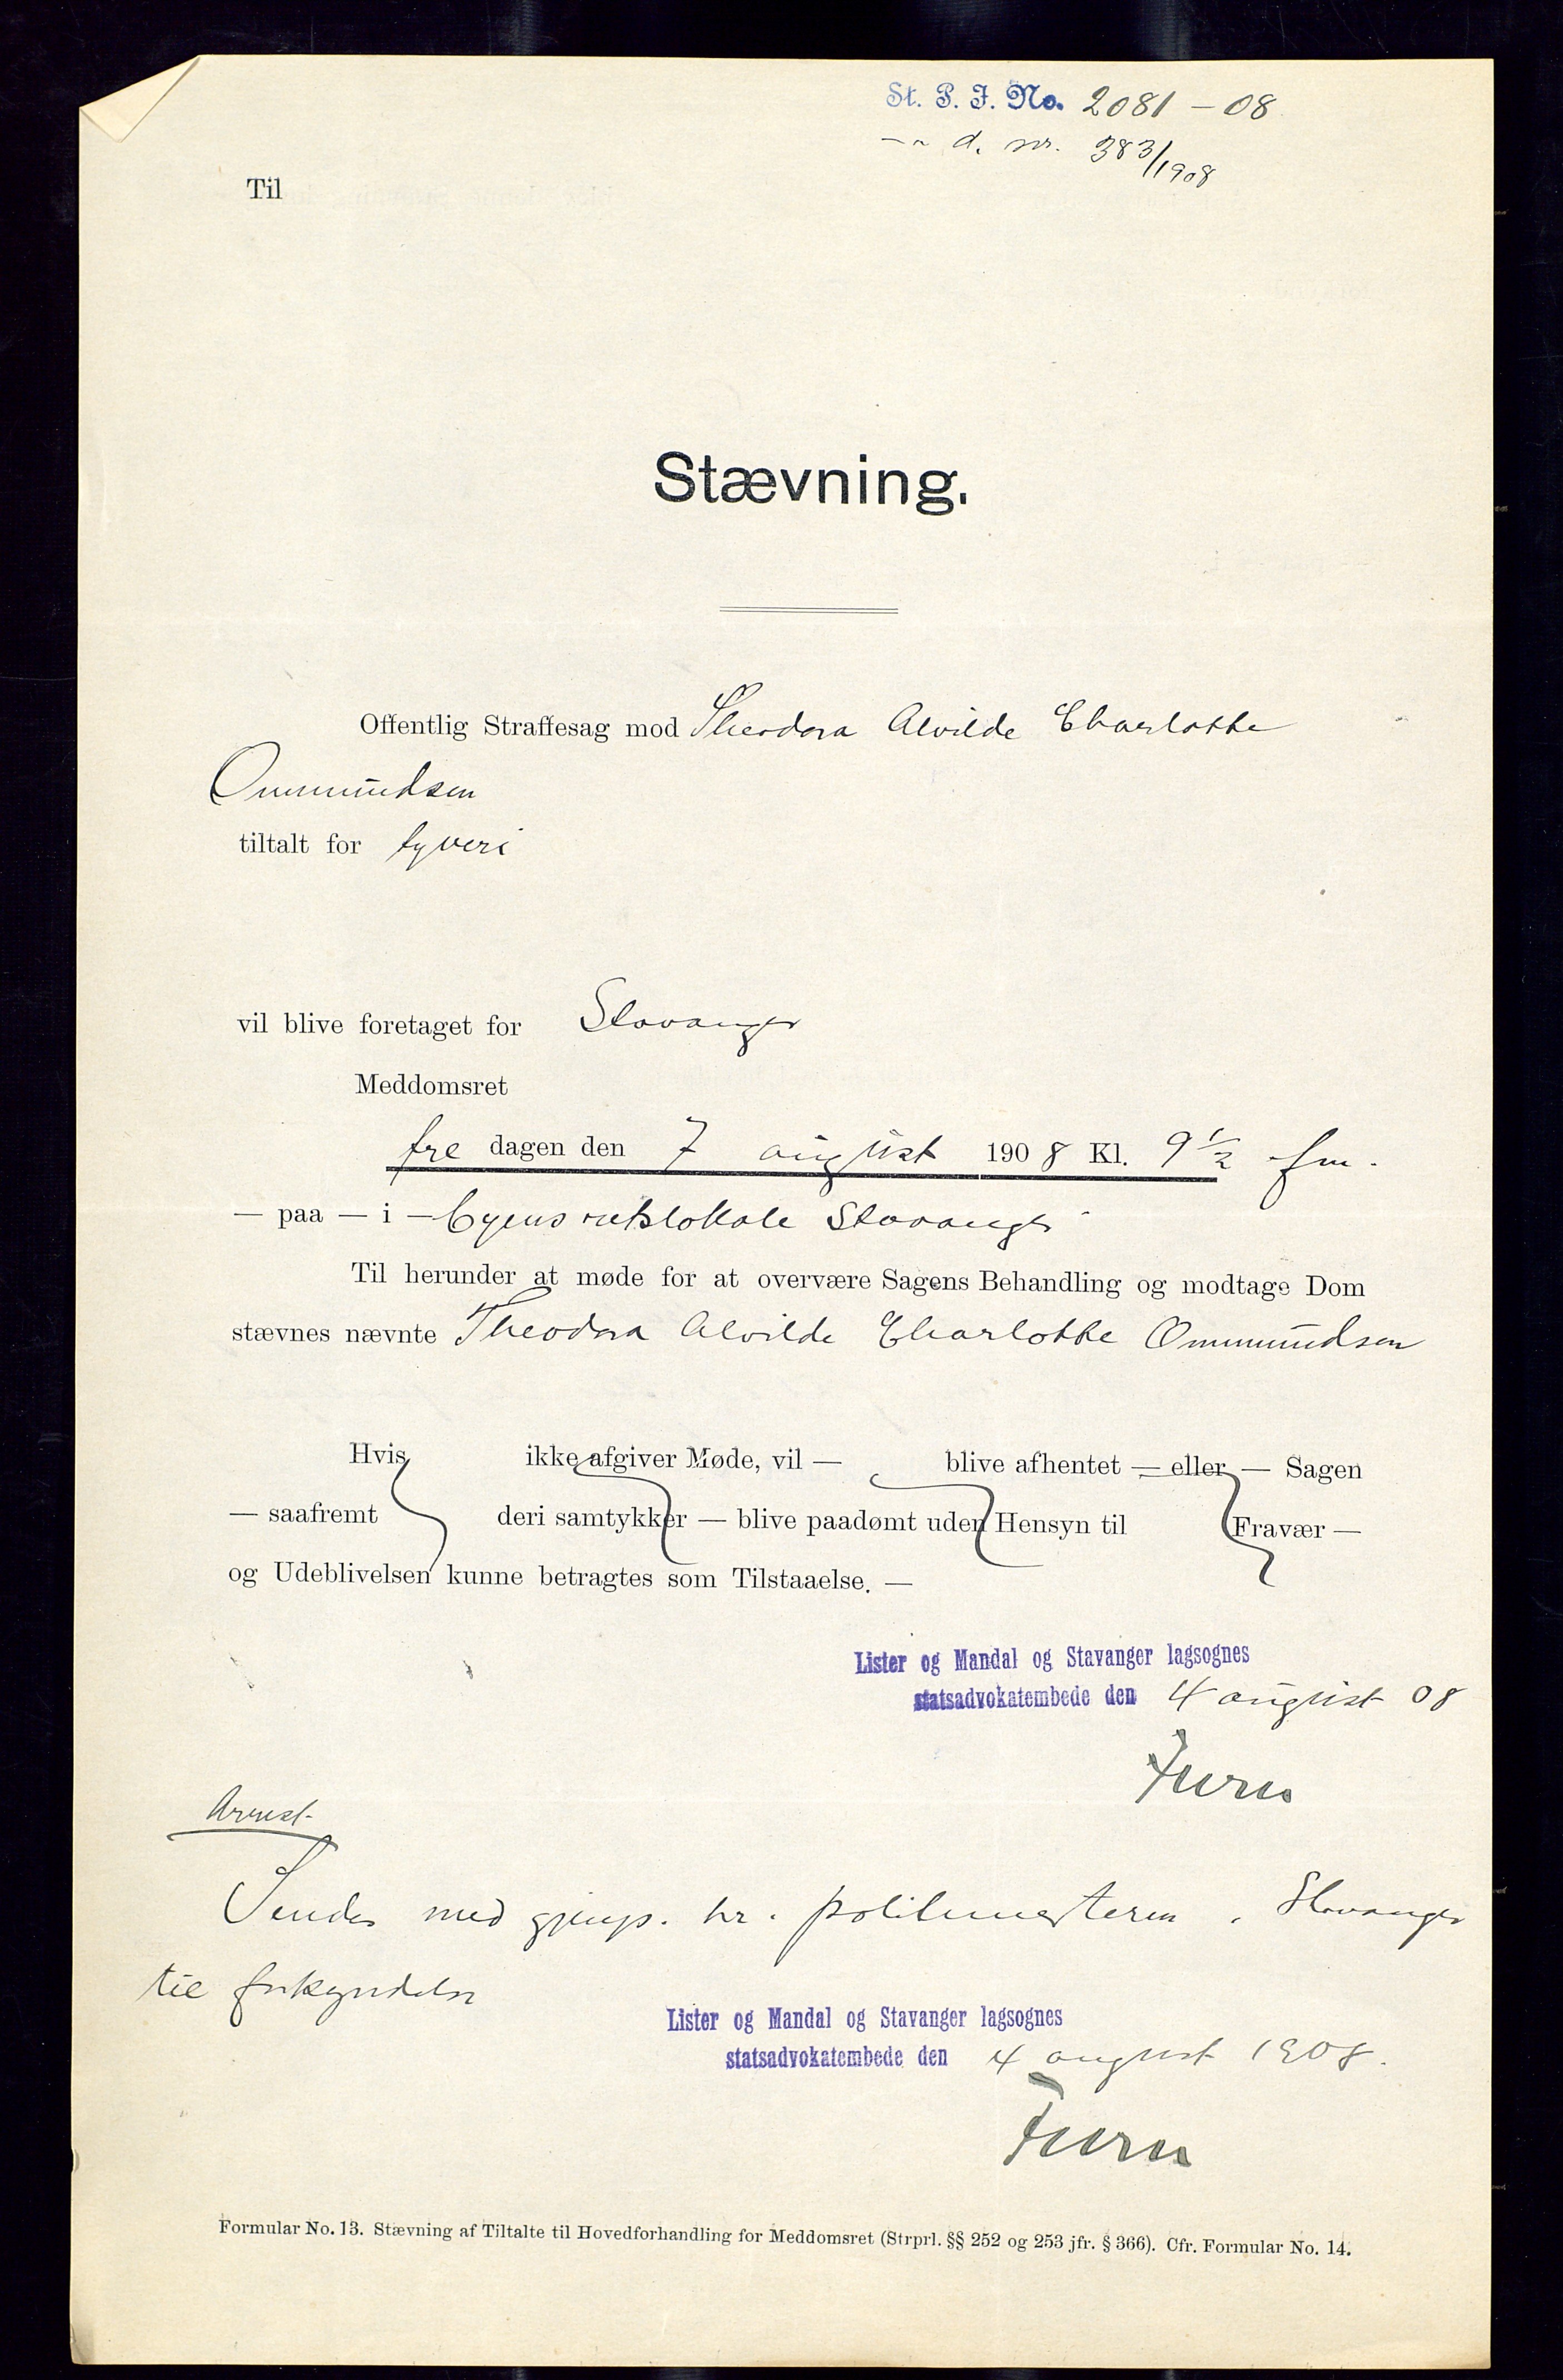 St. P. J. No. 2081 – 08
– " d. nr. 383/1908
Til
Stævning.
Offentlig Straffesag mod Theodora Alvilde Charlotte
Ommundsen
tiltalt for tyveri
vil blive foretaget for Stavanger
Meddomsret
fre dagen den 7 august 1908 Kl. 9 1/2 fm.
— paa — i — byens retslokale Stavanger
Til herunder at møde for at overvære Sagens Behandling og modtage Dom
stævnes nævnte Theodora Alvilde Charlotte Ommundsen
Hvis ikke afgiver Møde, vil — blive afhentet — eller — Sagen
— saafremt deri samtykker — blive paadømt uden Hensyn til Fravær —
og Udeblivelsen kunne betragtes som Tilstaaelse. —
Lister og Mandal og Stavanger lagsognes
statsadvokatembede den 4 august 08
Furu
Arrest
Sendes med gjenp. hr. politimesteren i Stavanger
til forkyndelse
Lister og Mandal og Stavanger lagsognes
statsadvokatembede den 4 august 1908.
Furu
Formular No. 13. Stævning af Tiltalte til Hovedforhandling for Meddomsret (Strprl. §§ 252 og 253 jfr. § 366). Cfr. Formular No. 14.